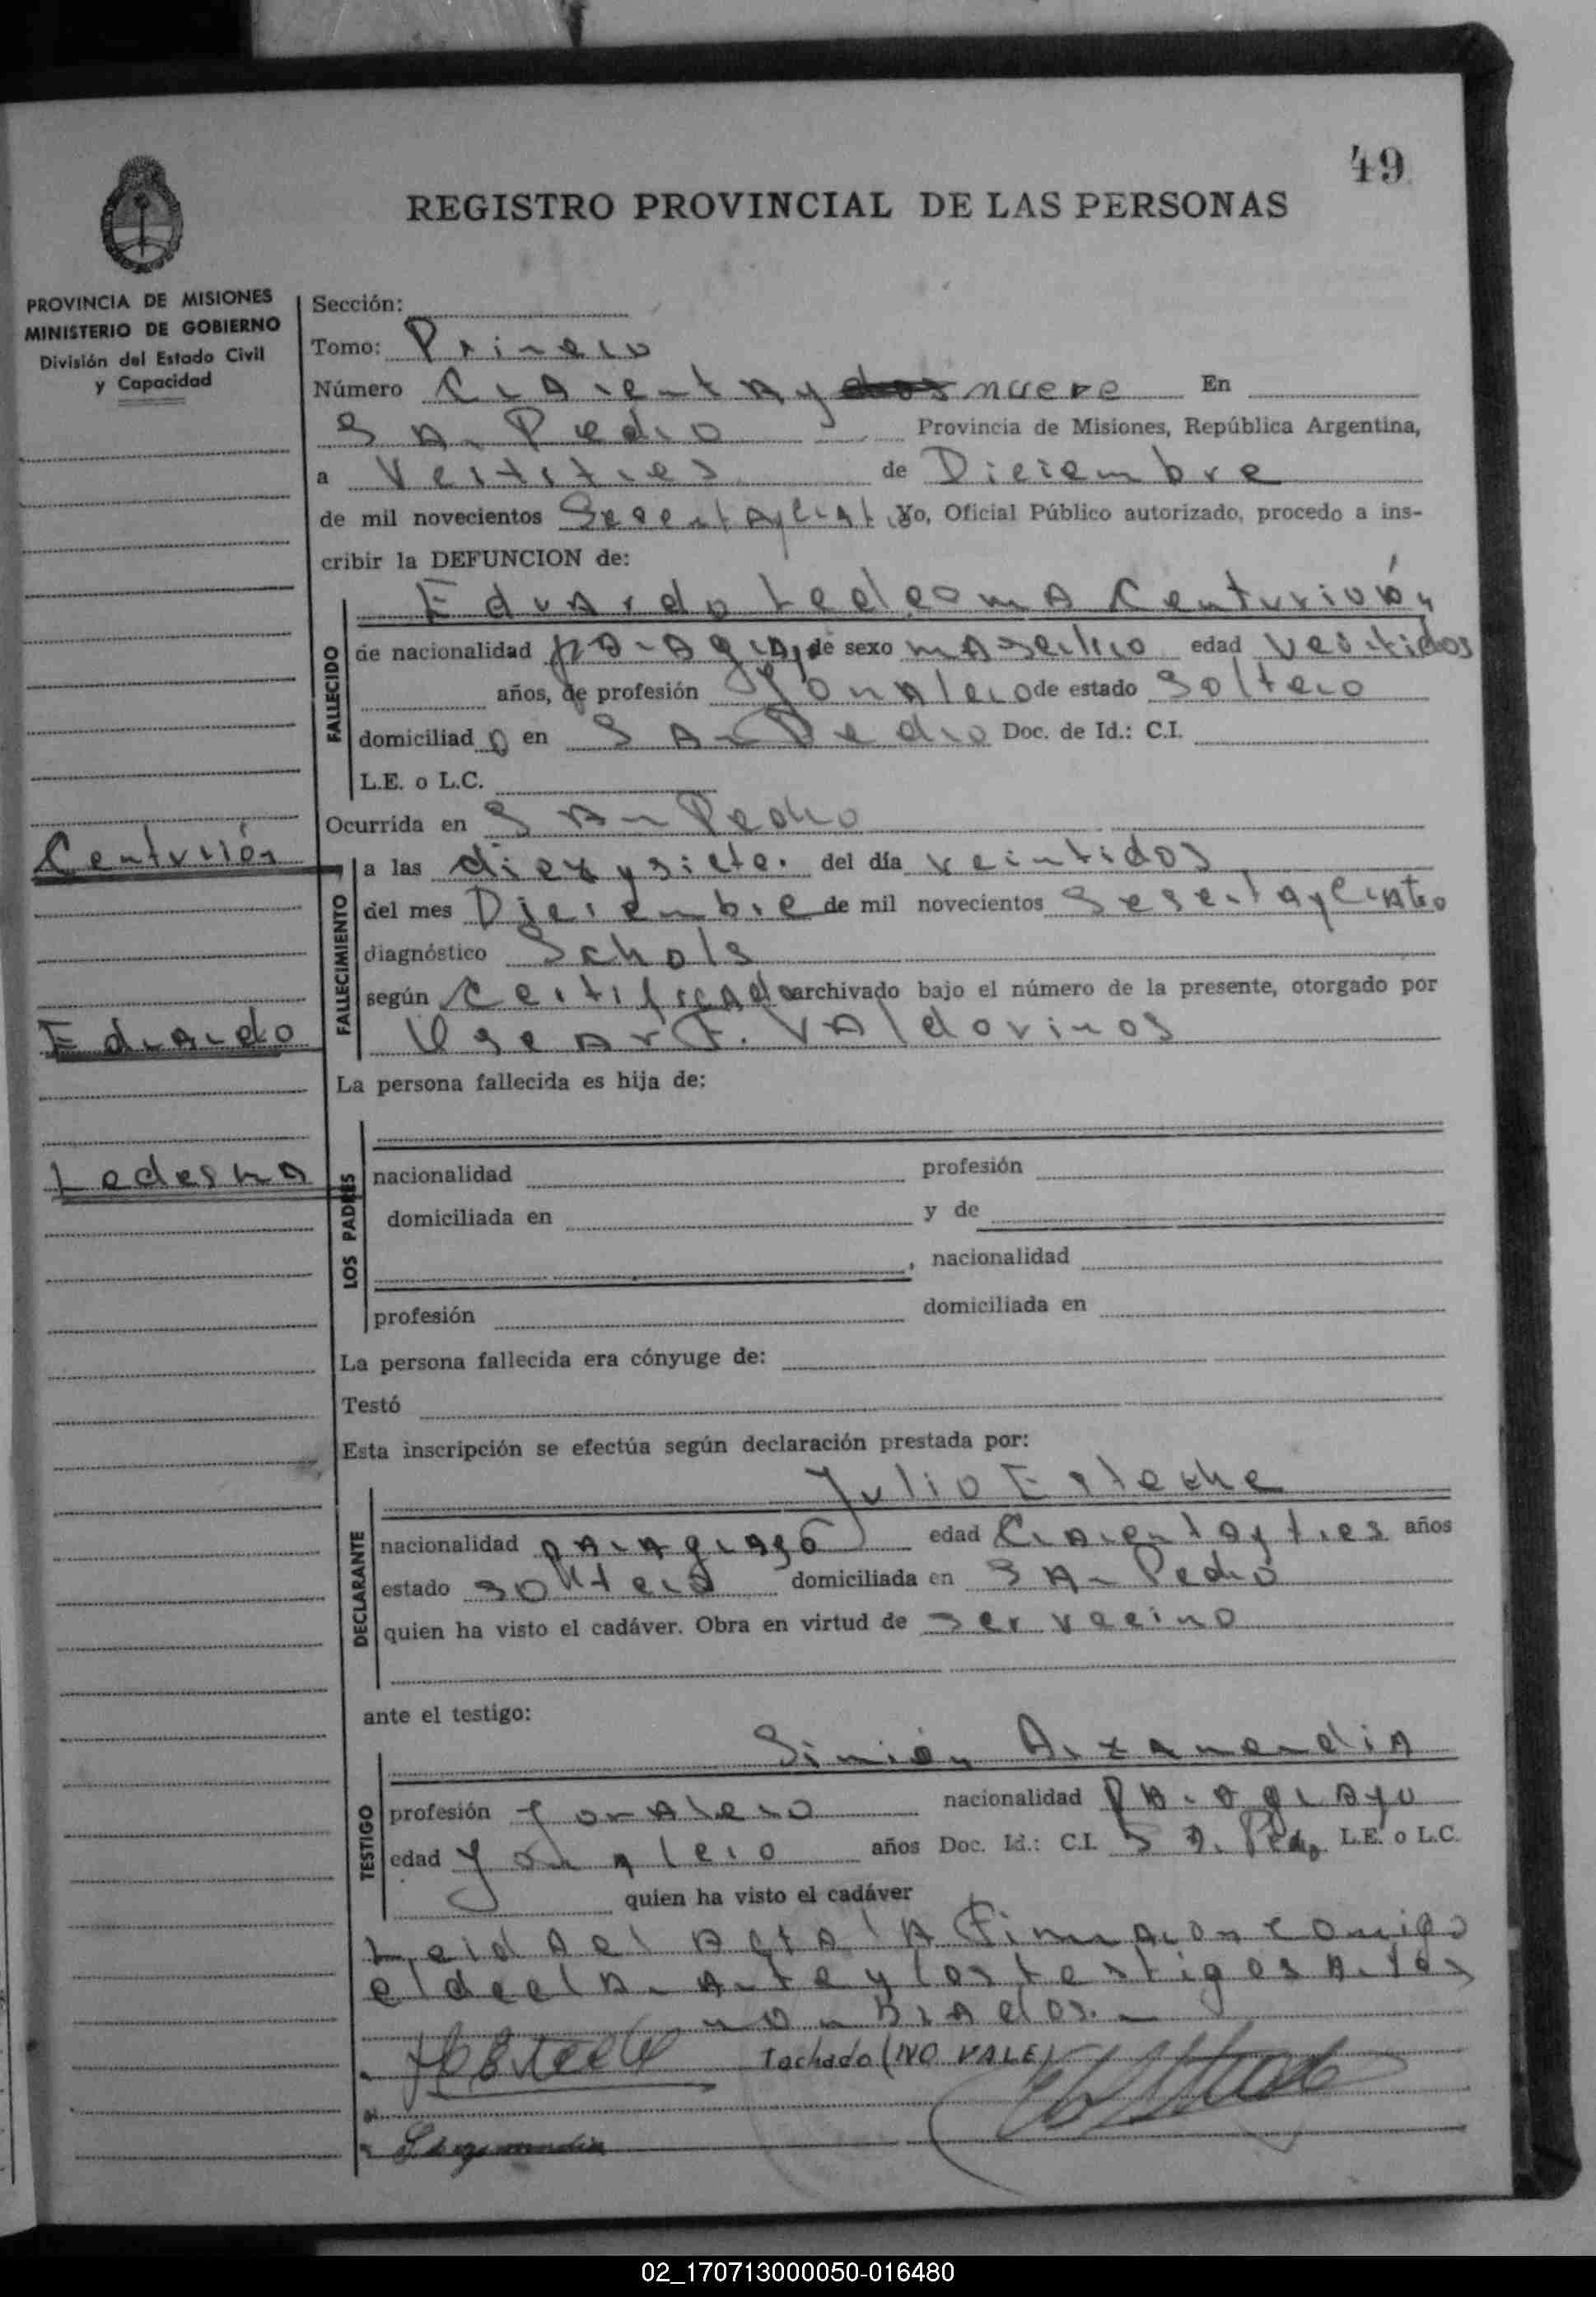 49
REGISTRO PROVINCIAL DE LAS PERSONAS
PROVINCIA DE MISIONES
MINISTERIO DE GOBIERNO
División del Estado Civil
y Capacidad
Sección:
Tomo: Primero
Número Cuarentay dos nueve En
San Pedro Provincia de Misiones, República Argentina,
a de Diciembre
de mil novecientos Yo, Oficial Público autorizado, procedo a ins-
cribir la DEFUNCION de:
Eduardo Ledesma Centurión
FALLECIDO
de nacionalidad de sexo edad
años, de profesión Jornalero de estado Soltero
domiciliado en San Pedro Doc. de Id.: C.I.
L.E. o L.C.
Ocurrida en San Pedro
Centurión
Eduardo
Ledesma
FALLECIMIENTO
a las diez y siete. del día veintidos
del mes Diciembre de mil novecientos
diagnóstico Schols
según Certificado archivado bajo el número de la presente, otorgado por
Oscar F. Valdovinos
La persona fallecida es hija de:
LOS PADRES
nacionalidad profesión
domiciliada en y de
, nacionalidad
profesión domiciliada en
La persona fallecida era cónyuge de:
Testó
Esta inscripción se efectúa según declaración prestada por:
Julio Esteche
DECLARANTE
nacionalidad paraguayo edad años
estado soltero domiciliada en San Pedro
quien ha visto el cadáver. Obra en virtud de ser vecino
ante el testigo:
TESTIGO
profesión Jornalero nacionalidad paraguayo
edad Jornalero años Doc. Id.: C.I. San Pedro L.E. o L.C.
quien ha visto el cadáver
Leida el acta la Firmaron comigo
el y los testigos antes
nombrados.
Tachado (NO VALE)
02_170713000050-016480